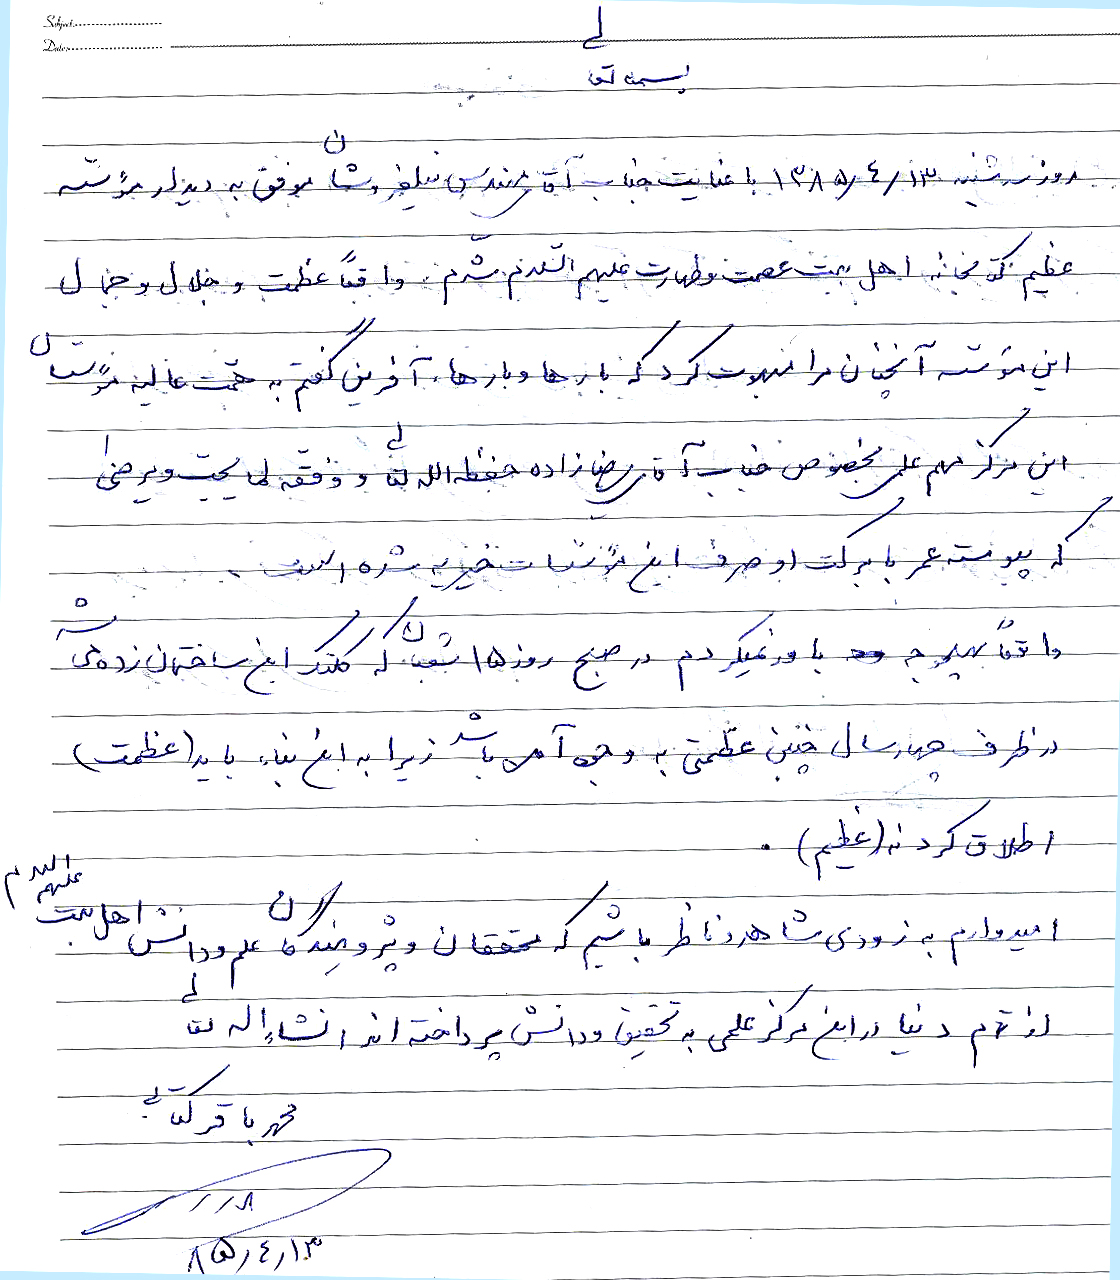 Subject:
Date:
بسمه تعالی
روز سه شنبه ۱۳۸۵/۴/۱۳ با عنایت جناب آقای مهندس نیلفروشان موفق به دیدار مؤسّسه
عظیم کتابخانه اهل بیت عصمت و طهارت علیهم السّلام شدم. واقعاً عظمت و جلال و جمال
این مؤسّسه آنچنان مرا مبهوت کرد که بارها و بارها، آفرین گفتم به همّت عالیه مؤسّسان
این مرکز مهم علمی بخصوص جناب آقای رضازاده حفظه الله تعالی و وفّقه لما یحبّ و یرضی
که پیوسته عمر با برکت او صرف این مؤسّسات خیریه شده است.
واقعاً بهیچوجه باور نمیکردم در صبح روز ۱۵ شعبان که کلنگ این ساختمان زده می‌شد
در ظرف چهار سال چنین عظمتی به وجود آمده باشد زیرا به این بناء باید (عظمت)
اطلاق کرد نه (عظیم).
امیدوارم به زودی شاهد و ناظر باشیم که محققان و پژوهندگان علم و دانش اهل بیت علیهم السلام
از تمام دنیا در این مرکز علمی به تحقیق و دانش پرداخته اند انشاءاله تعالی
محمد باقر کتابی
۸۵/۴/۱۳